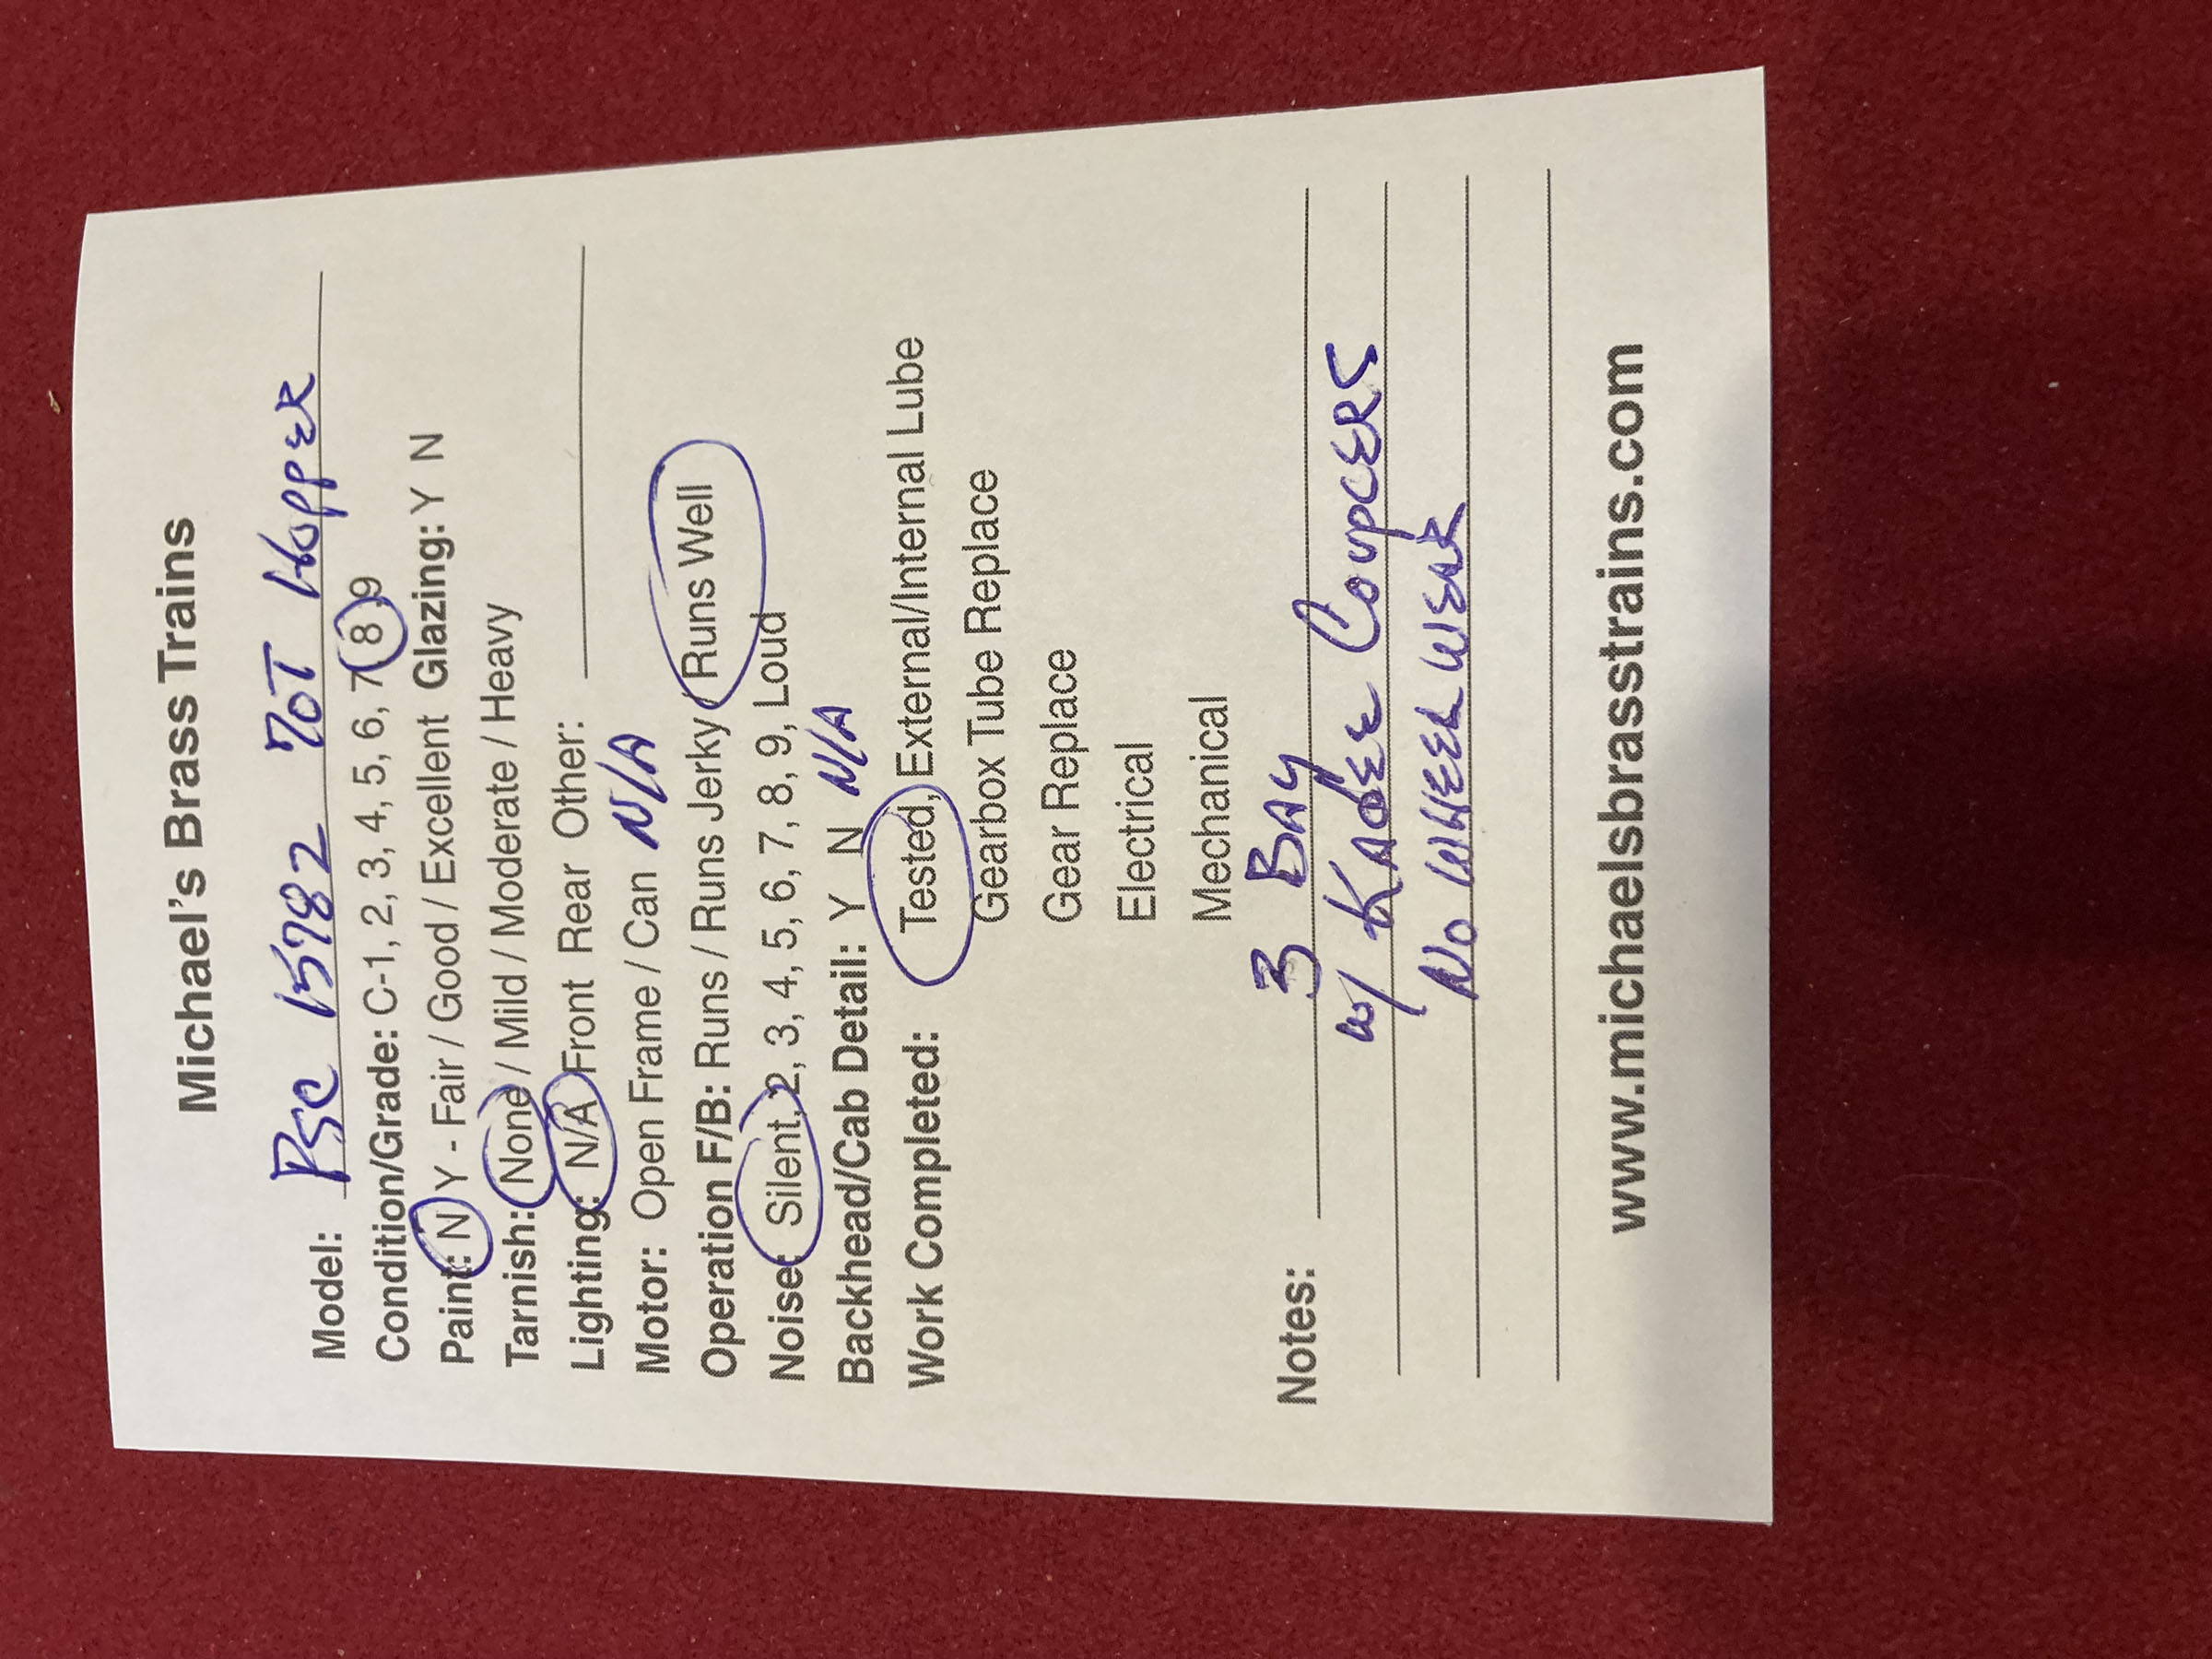 Michael's Brass Trains
Model: PSC 15782 70T HOPPER
Condition/Grade: C-1, 2, 3, 4, 5, 6, 7, 8, 9
Paint: N Y - Fair / Good / Excellent Glazing: Y N
Tarnish: None / Mild / Moderate / Heavy
Lighting: N/A Front Rear Other:
Motor: Open Frame / Can N/A
Operation F/B: Runs / Runs Jerky / Runs Well
Noise: Silent, 2, 3, 4, 5, 6, 7, 8, 9, Loud
Backhead/Cab Detail: Y N N/A
Work Completed: Tested, External/Internal Lube
Gearbox Tube Replace
Gear Replace
Electrical
Mechanical
Notes: 3 BAY
w/ KADEE COUPLERS
NO WHEEL WEAR
www.michaelsbrasstrains.com